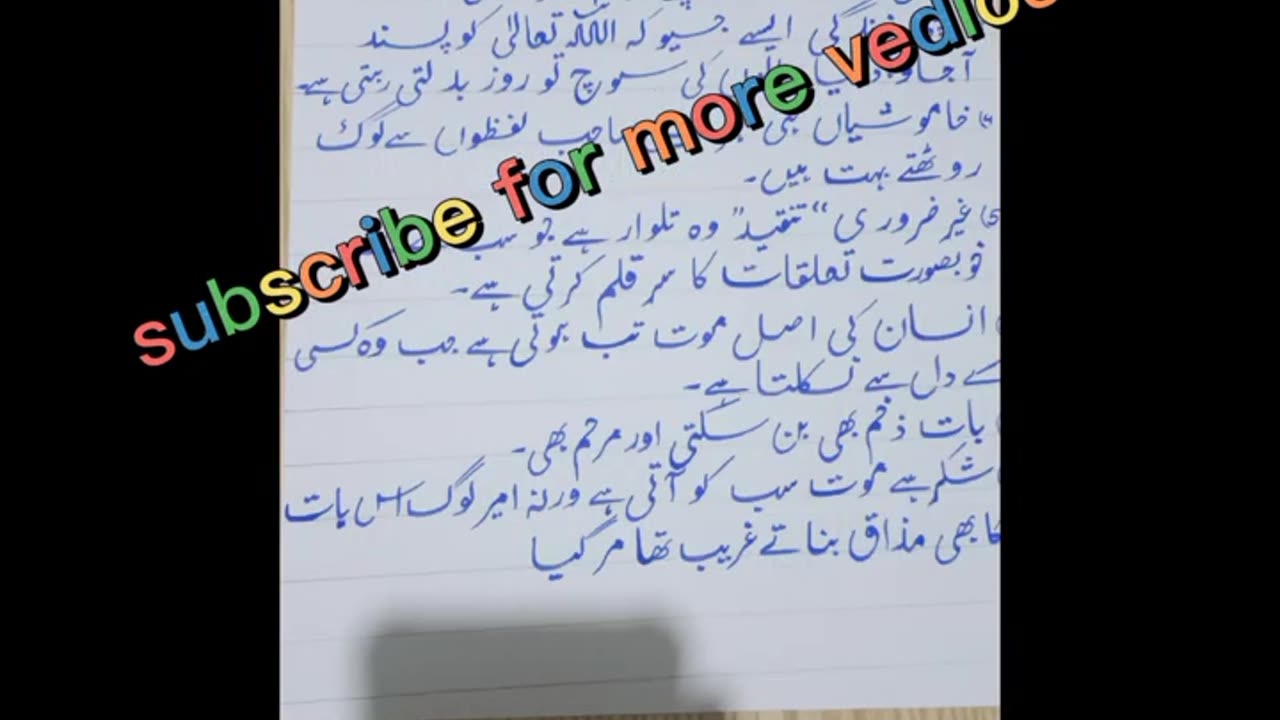 زندگی ایسے جیو کہ اللہ تعالیٰ کو پسند
آجاؤ کی سوچ تو روز بدلتی رہتی ہے۔
خاموشیاں ہی صاحب لفظوں سے لوگ
روٹھتے بہت ہیں۔
غیر ضروری “تنقید” وہ تلوار ہے جو سب
خوبصورت تعلقات کا سر قلم کرتی ہے۔
انسان کی اصل موت تب ہوتی ہے جب وہ کسی
کے دل سے نکلتا ہے۔
بات زخم بھی بن سکتی اور مرحم بھی۔
شکر ہے موت سب کو آتی ہے ورنہ امیر لوگ اس بات
کا بھی مذاق بناتے غریب تھا مر گیا
subscribe for more